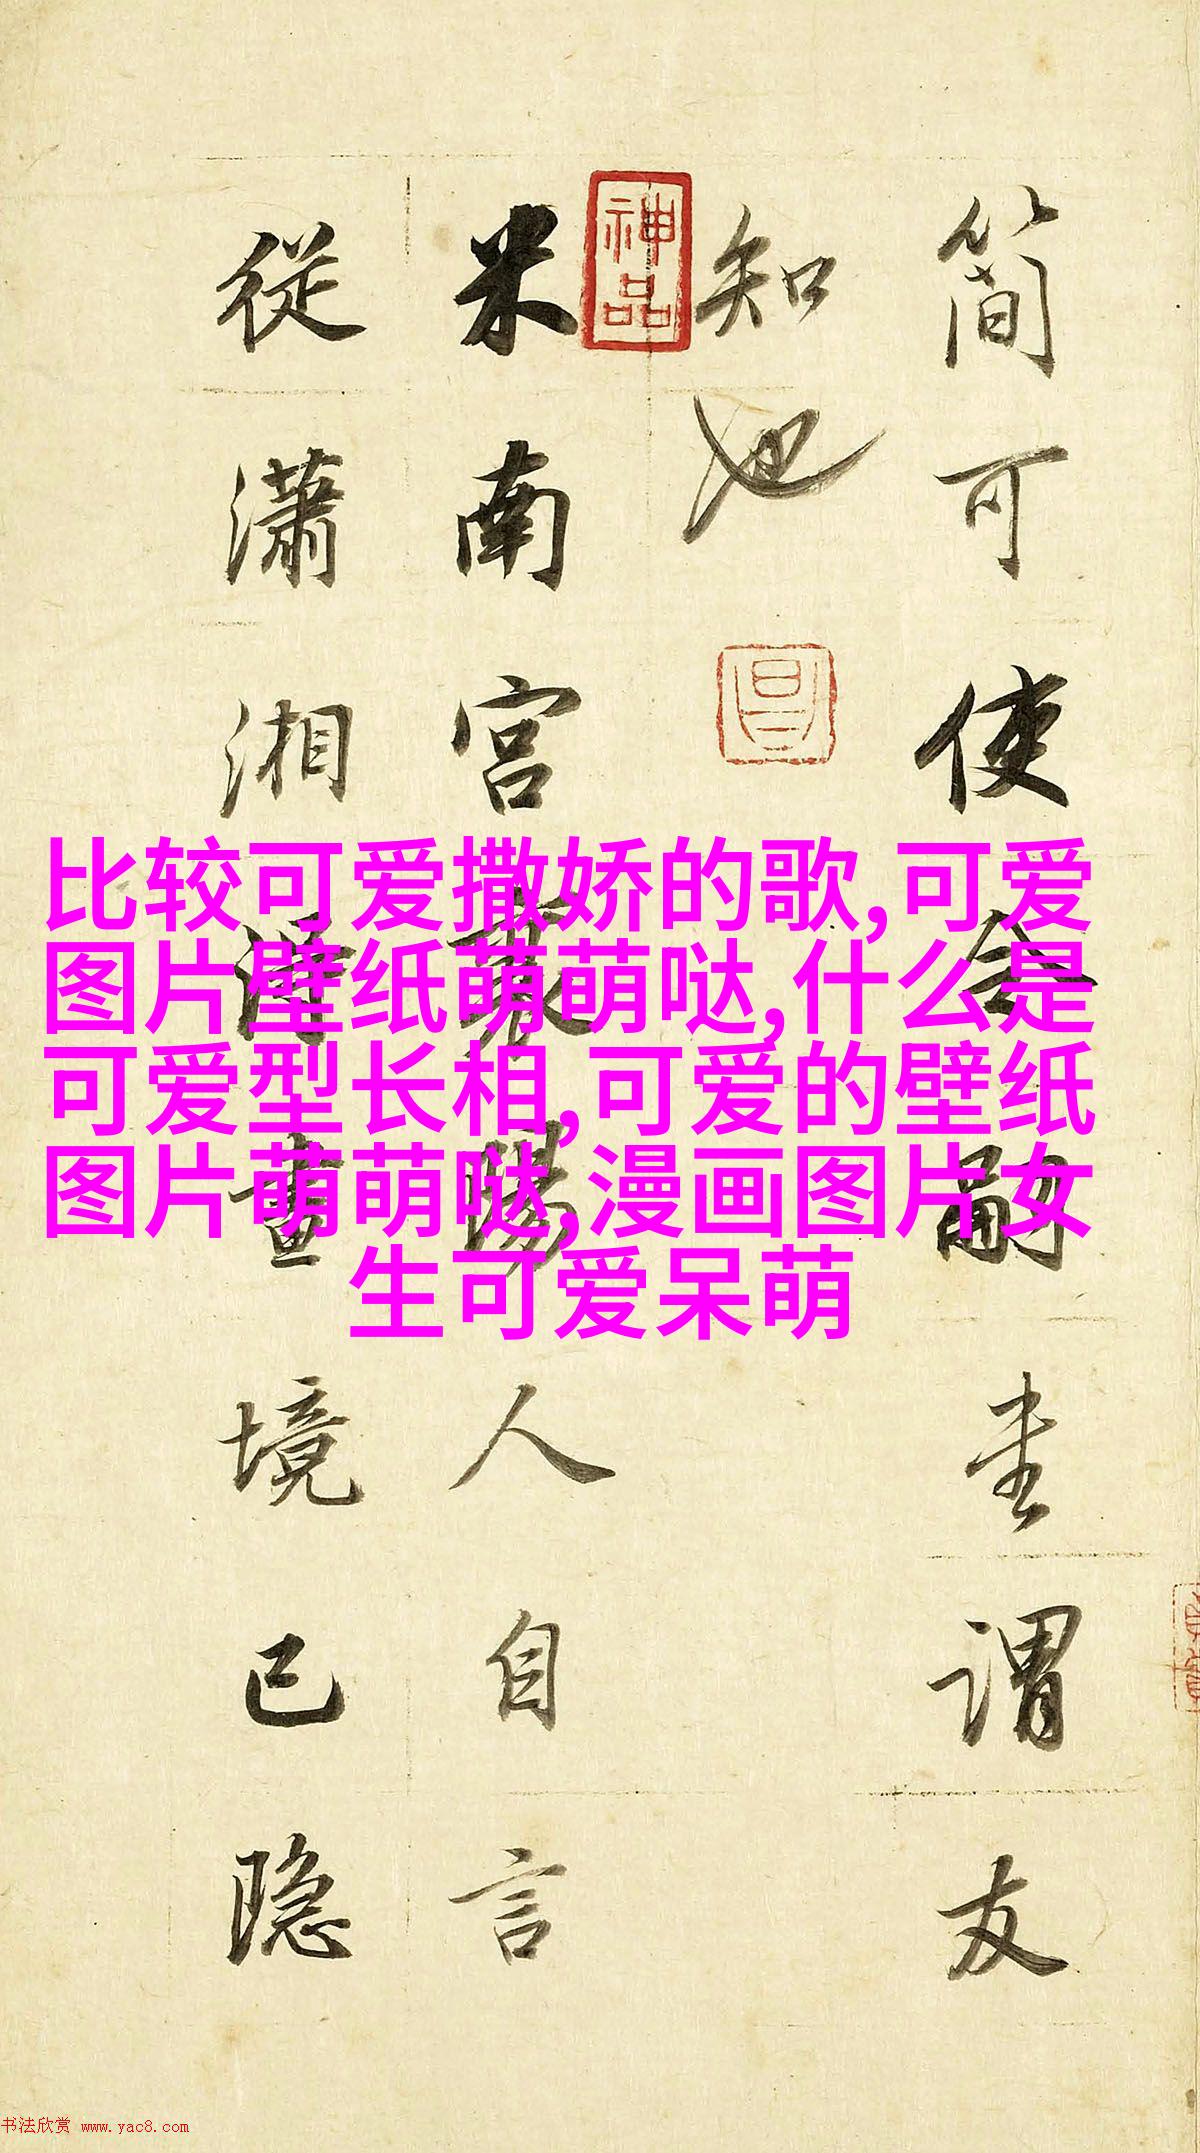 簡可使令嗣書謂友
知也
米南宮襄陽人自言
從瀟湘得畫境已隐
神品
比较可爱撒娇的歌,可爱
图片壁纸萌萌哒,什么是
可爱型长相,可爱的壁纸
图片萌萌哒,漫画图片女
生可爱呆萌
书法欣赏 www.yac8.com